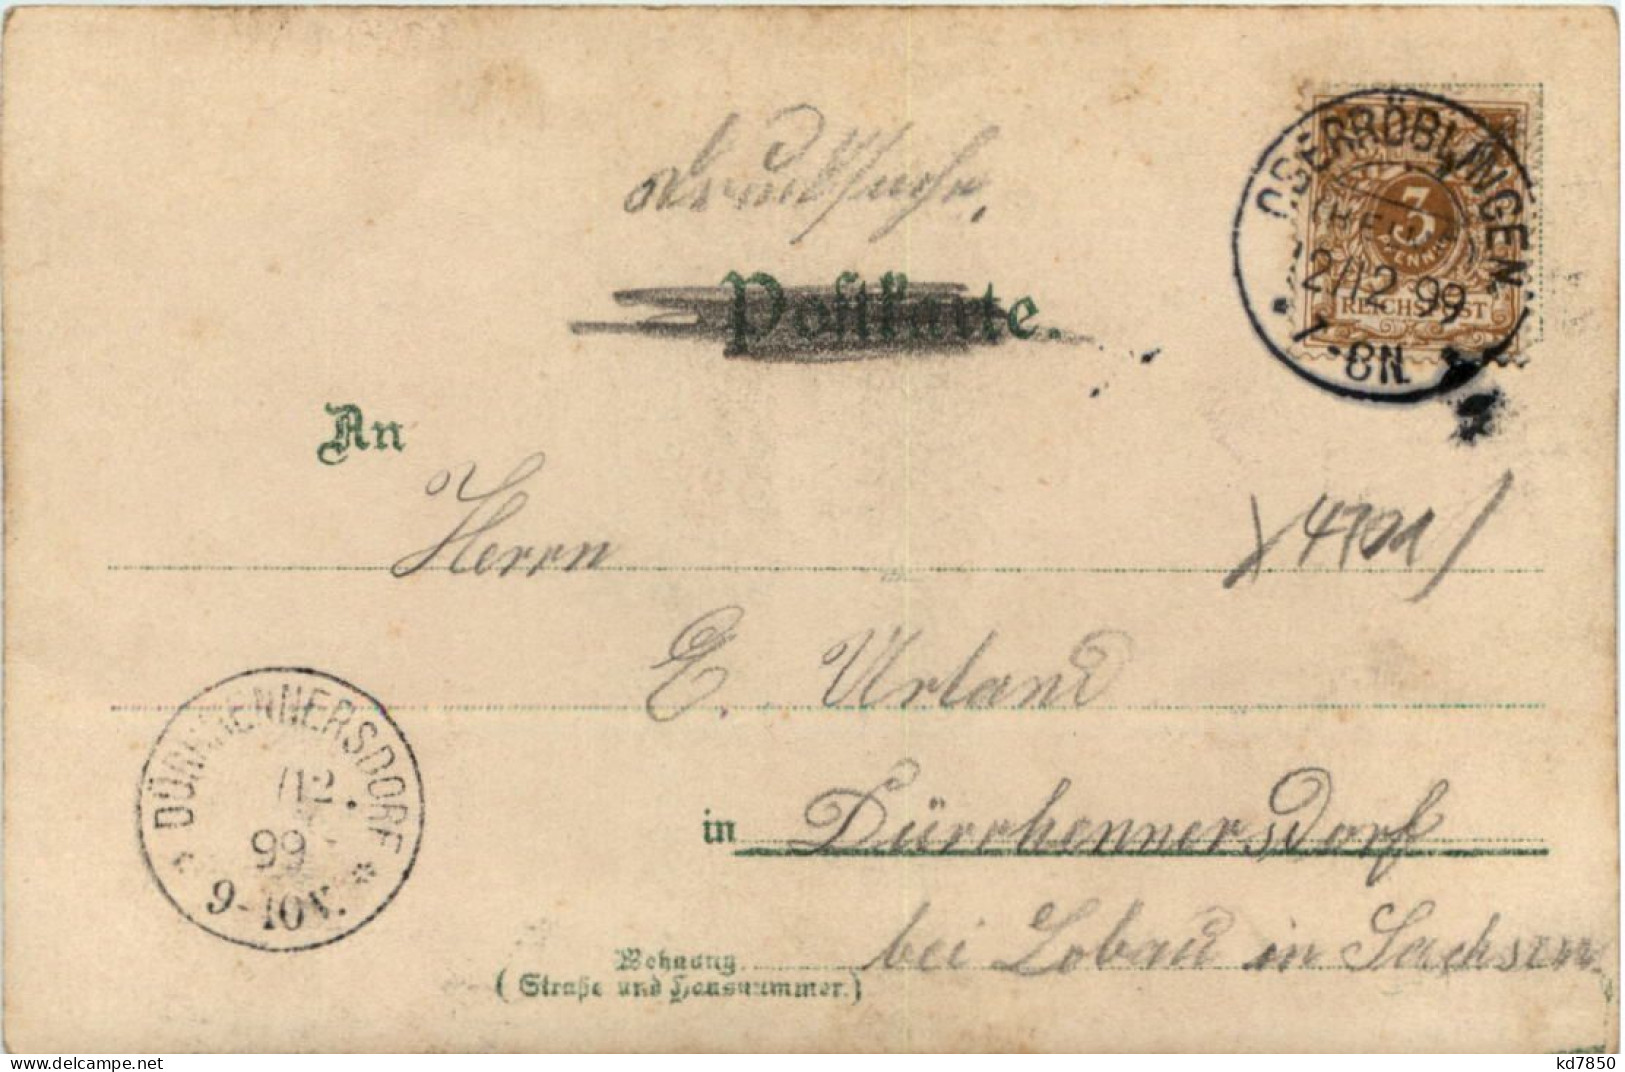 Drucksache.
Postkarte.
OBERRÖBLINGEN
(HELME)
12/12 99
7-8N.
3
PFENNIG
REICHSPOST
An
Herrn
E. Urland
in Dürrhennersdorf
bei Löbau in Sachsen
DÜRRHENNERSDORF
/12.
99
9-10V.
Wohnung
(Straße und Hausnummer.)
https://www.delcampe.net
kd7850